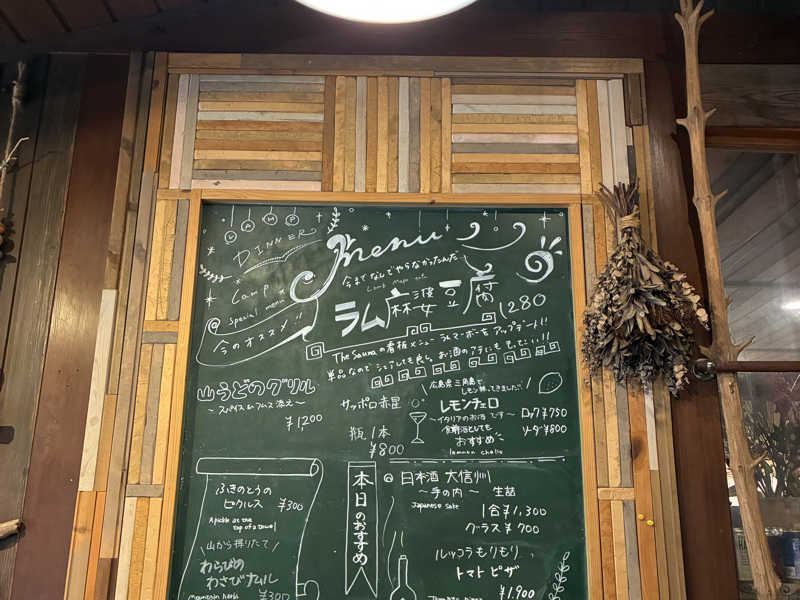 LAMP
DINNER
Camp
Special menu
今のオススメ!!
menu
今までなんでやらなかったんだ…
ラム麻婆豆腐 1280
The Saunaの看板メニュー ラムマーボーをアップデート!!
単品なので シェアしても良し お酒のアテにも
山うどのグリル
～スパイス&フムス添え～
¥1,200
サッポロ赤星
瓶 1本
¥800
広島県 三角島で
レモン狩ってきました!
レモンチェロ
～イタリアのお酒です～
食前酒としても
おすすめ
ロック¥750
ソーダ¥800
ふきのとうの
ピクルス ¥300
山から採りたて
わらびの
わさびナムル
Mountain herb ¥300
本日のおすすめ
日本酒 大信州
～手の内～ 生詰
Japanese sake
1合¥1,300
グラス¥700
ルッコラもりもり
トマトピザ
¥1,900